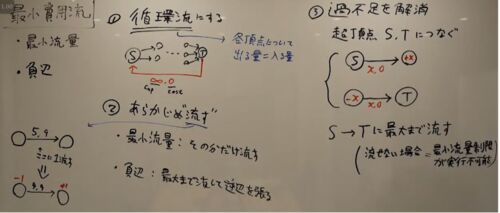 最小費用流
・最小流量
・負辺
① 循環流にする
各頂点について
出る量=入る量
S
T
∞, 0
cap cost
② あらかじめ流す
・最小流量：そのぶんだけ流す
・負辺：最大まで流して逆辺を張る
5, 9
ここに1流す
-1
4, 9
+1
③ 過不足を解消
超頂点 S, Tにつなぐ
S
+x
x, 0
-x
T
x, 0
S→Tに最大まで流す
(流せない場合=最小流量制限
が実行不可能)